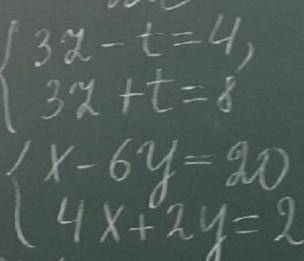 3z - t = 4,
3z + t = 8
x - 6y = 20
4x + 2y = 2